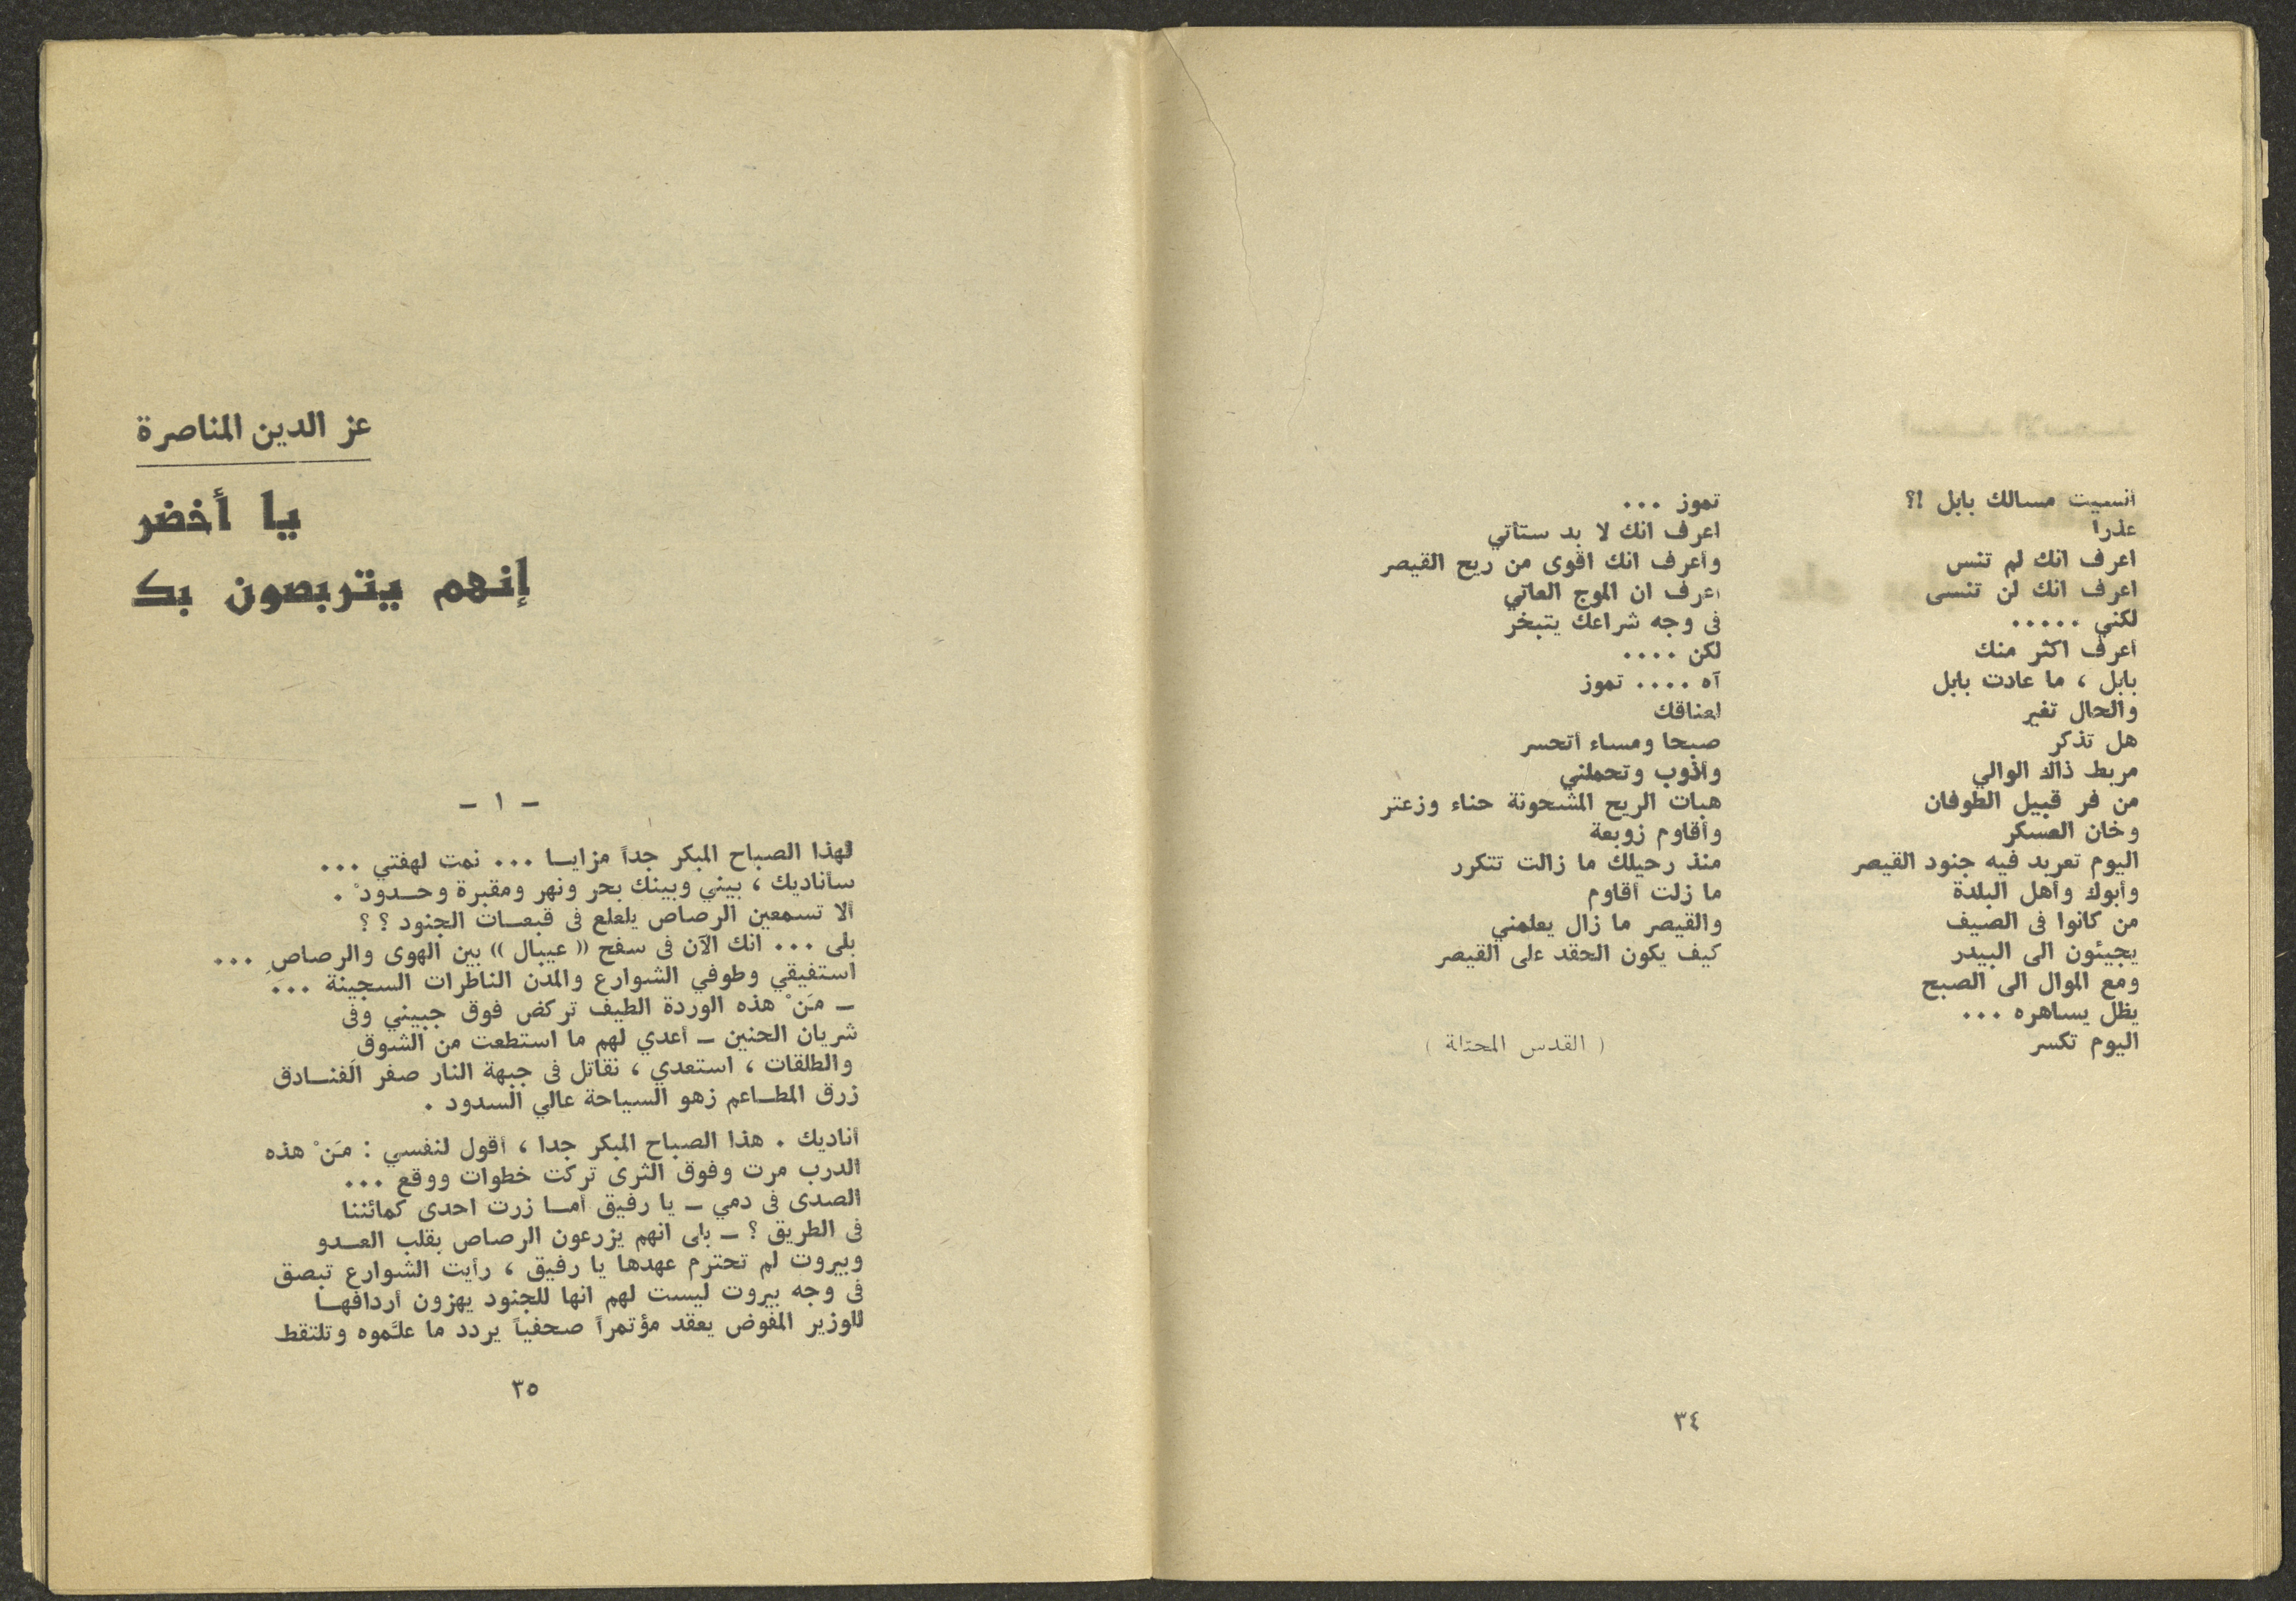 أنسيت مسالك بابل ؟!
عذرا
اعرف انك لم تنس
اعرف انك لن تنسى
لكني .....
أعرف اكثر منك
بابل ، ما عادت بابل
والحال تغير
هل تذكر
مربط ذاك الوالي
من فر قبيل الطوفان
وخان العسكر
اليوم تعربد فيه جنود القيصر
وأبوك وأهل البلدة
من كانوا فى الصيف
يجيئون الى البيدر
ومع الموال الى الصبح
يظل يساهره ...
اليوم تكسر
تموز ...
اعرف انك لا بد ستأتي
وأعرف انك اقوى من ريح القيصر
اعرف ان الموج العاتي
فى وجه شراعك يتبخر
لكن ....
آه .... تموز
لعناقك
صبحا ومساء أتحسر
وأذوب وتحملني
هبات الريح المشحونة حناء وزعتر
وأقاوم زوبعة
منذ رحيلك ما زالت تتكرر
ما زلت أقاوم
والقيصر ما زال يعلمني
كيف يكون الحقد على القيصر
( القدس المحتلة )
٣٤
عز الدين المناصرة
يا أخضر
إنهم يتربصون بك
– ١ –
لهذا الصباح المبكر جداً مزايـا ... نمت لهفتي ...
سأناديك ، بيني وبينك بحر ونهر ومقبرة وحـدودْ .
ألا تسمعين الرصاص يلعلع فى قبعـات الجنود ؟ ؟
بلى ... انك الآن فى سفح (( عيبال )) بين الهوى والرصاصِ ...
استفيقي وطوفي الشوارع والمدن الناطرات السجينة ...
– مَنْ هذه الوردة الطيف تركض فوق جبيني وفى
شريان الحنين – أعدي لهم ما استطعت من الشوق
والطلقات ، استعدي ، نقاتل فى جبهة النار صفر الفنـادق
زرق المطـاعم زهو السياحة عالي السدود .
أناديك . هذا الصباح المبكر جدا ، أقول لنفسي : مَنْ هذه
الدرب مرت وفوق الثرى تركت خطوات ووقع ...
الصدى فى دمي – يا رفيق أمـا زرت احدى كمائننا
فى الطريق ؟ – بلى انهم يزرعون الرصاص بقلب العـدو
وبيروت لم تحترم عهدها يا رفيق ، رأيت الشوارع تبصق
فى وجه بيروت ليست لهم انها للجنود يهزون أردافهـا
للوزير المفوض يعقد مؤتمراً صحفياً يردد ما علَّموه وتلتقط
٣٥